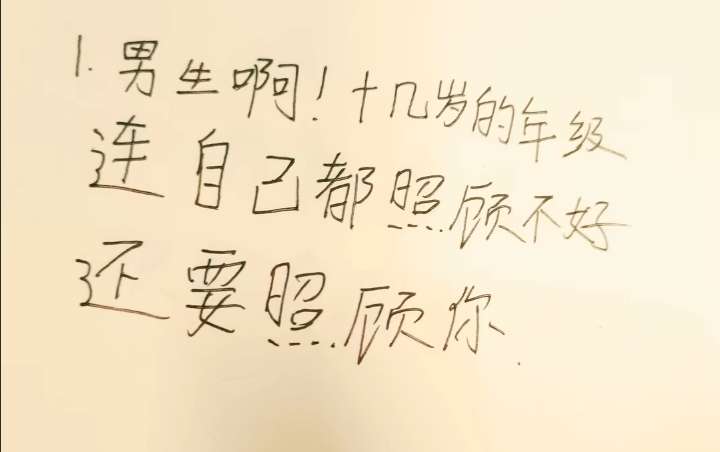 1. 男生啊!十几岁的年级
连自己都照顾不好
还要照顾你.